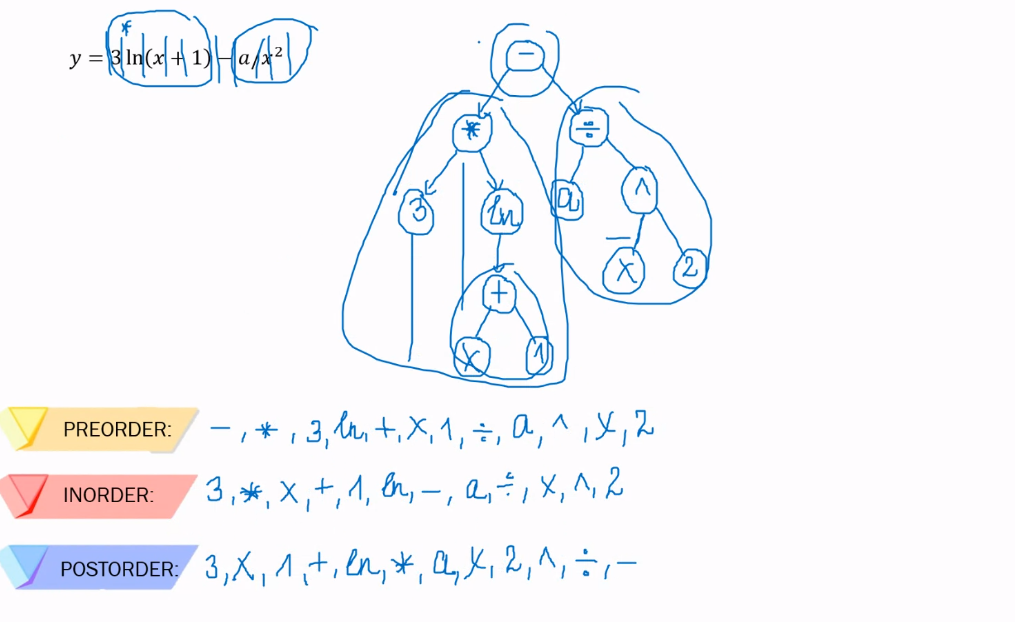 *
y = 3 ln(x + 1) - a/x²
-
* ÷
3 ln a ^
x 2
+
x 1
PREORDER: -, *, 3, ln, +, x, 1, ÷, a, ^, x, 2
INORDER: 3, *, x, +, 1, ln, -, a, ÷, x, ^, 2
POSTORDER: 3, x, 1, +, ln, *, a, x, 2, ^, ÷, -